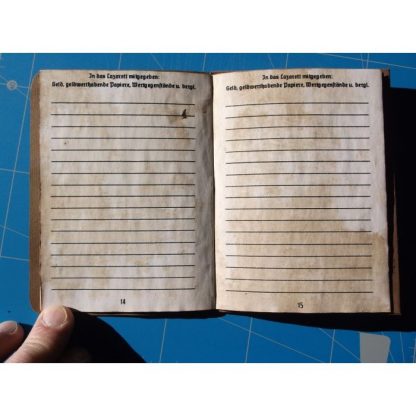 In das Lazarett mitgegeben:
Geld, geldwerthabende Papiere, Wertgegenstände u. dergl.
14
In das Lazarett mitgegeben:
Geld, geldwerthabende Papiere, Wertgegenstände u. dergl.
15